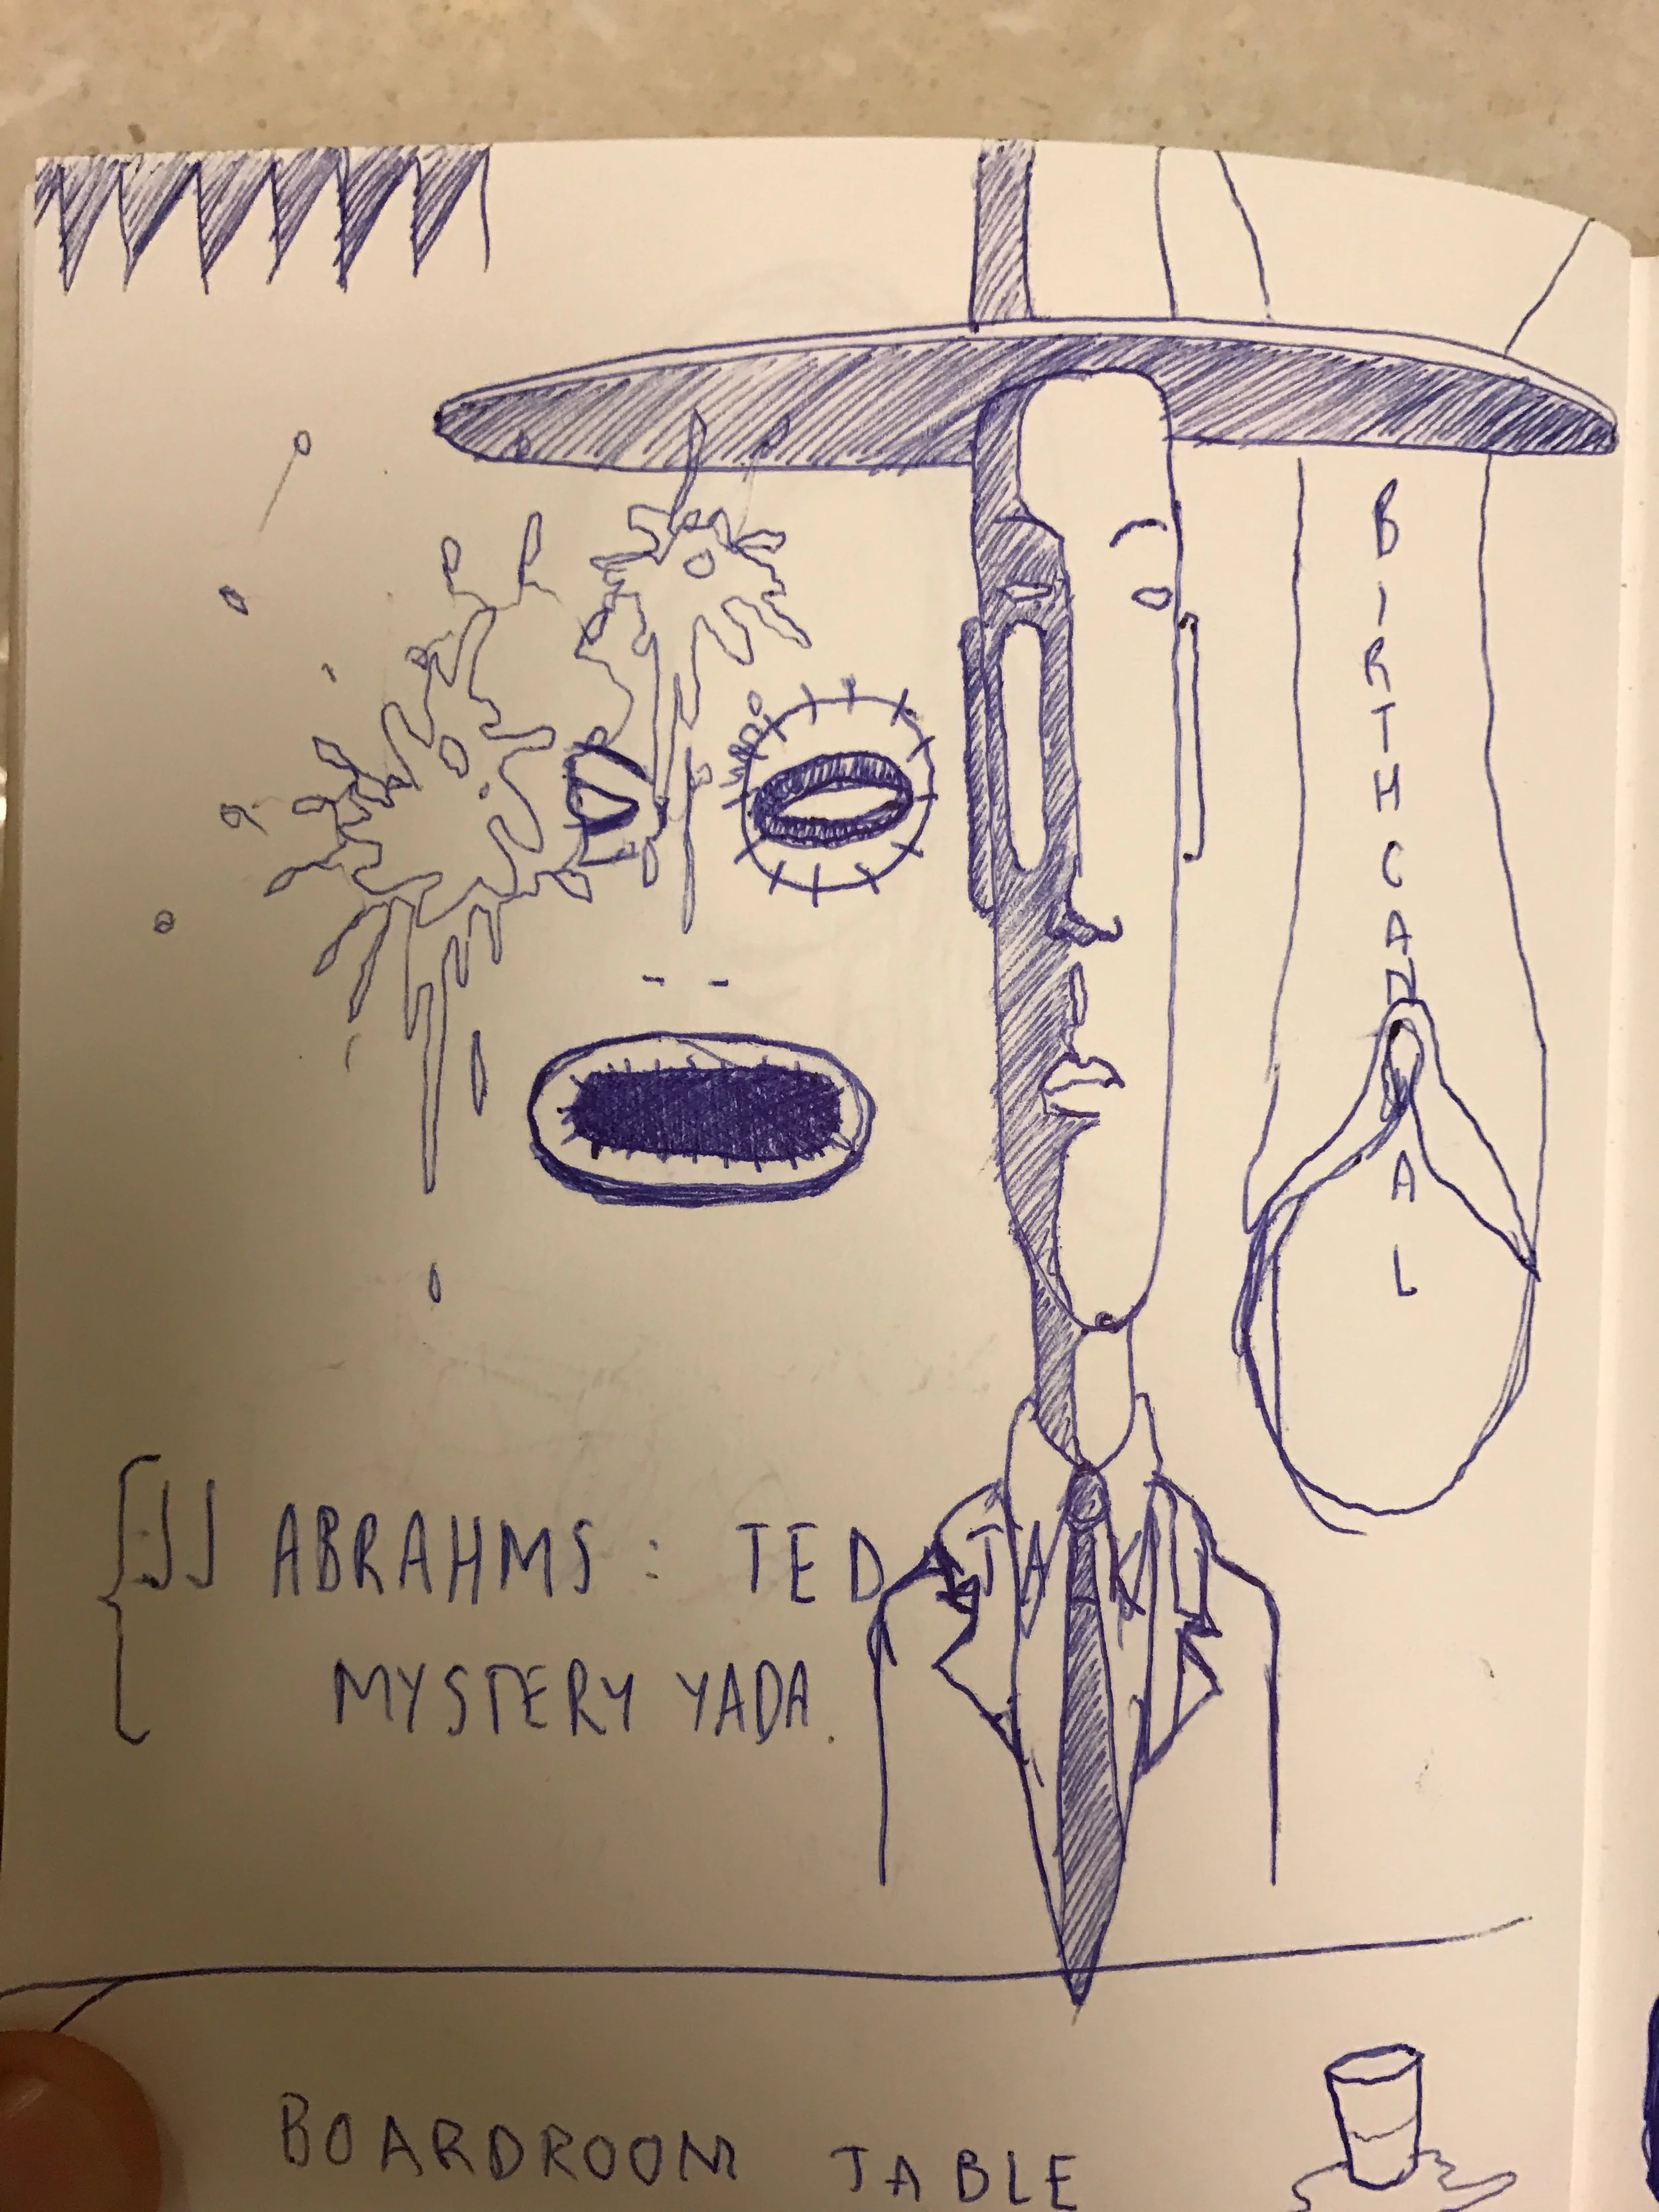 BIRTHCANAL
JJ ABRAHMS: TED TALK
MYSTERY YADA.
BOARDROOM TABLE